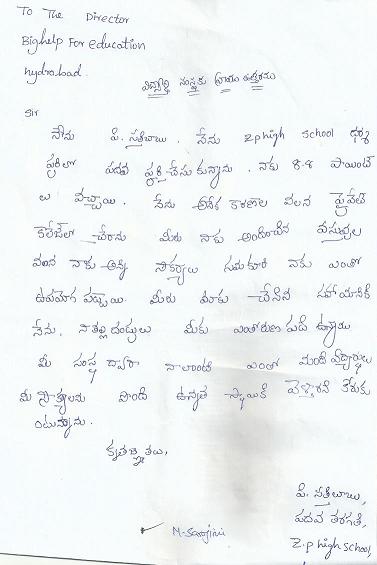 To The Director
Bighelp For education
hydrabad.
విద్యార్థి సంస్థకు వ్రాయు ఉత్తరము
Sir
నేను పి. సతీబాబు. నేను zp high school
పదవ పూర్తి చేసుకున్నాను. నాకు 8.8 పాయింట్
లు వచ్చాయి. నేను అనేక కారణాల వలన ప్రైవేట్
కాలేజీలో చేరాను మీరు నాకు అందించిన వస్తువుల
వలన నాకు అన్ని సౌకర్యాలు సమకూరి నాకు ఎంతో
ఉపయోగ పడ్డాయి. మీరు నాకు చేసిన సహాయానికి
నేను, నా తల్లి దండ్రులు మీకు ఎంతో రుణ పడి ఉన్నాము
మీ సంస్థ ద్వారా నాలాంటి ఎంతో మంది విద్యార్థులు
మీ పొంది ఉన్నత స్థాయికి వెళ్ళాలని కోరుకు
ంటున్నాను.
కృతజ్ఞతలు,
పి. సతీబాబు,
పదవ తరగతి,
Z.p high school,
M-Sarojini